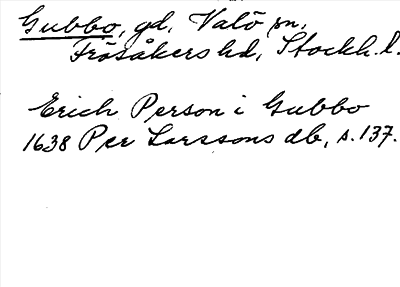 Gubbo, gd, Valö sn,
Frösåkers hd, Stockh. l.
Erich Person i Gubbo
1638 Per Larssons db, s. 137.